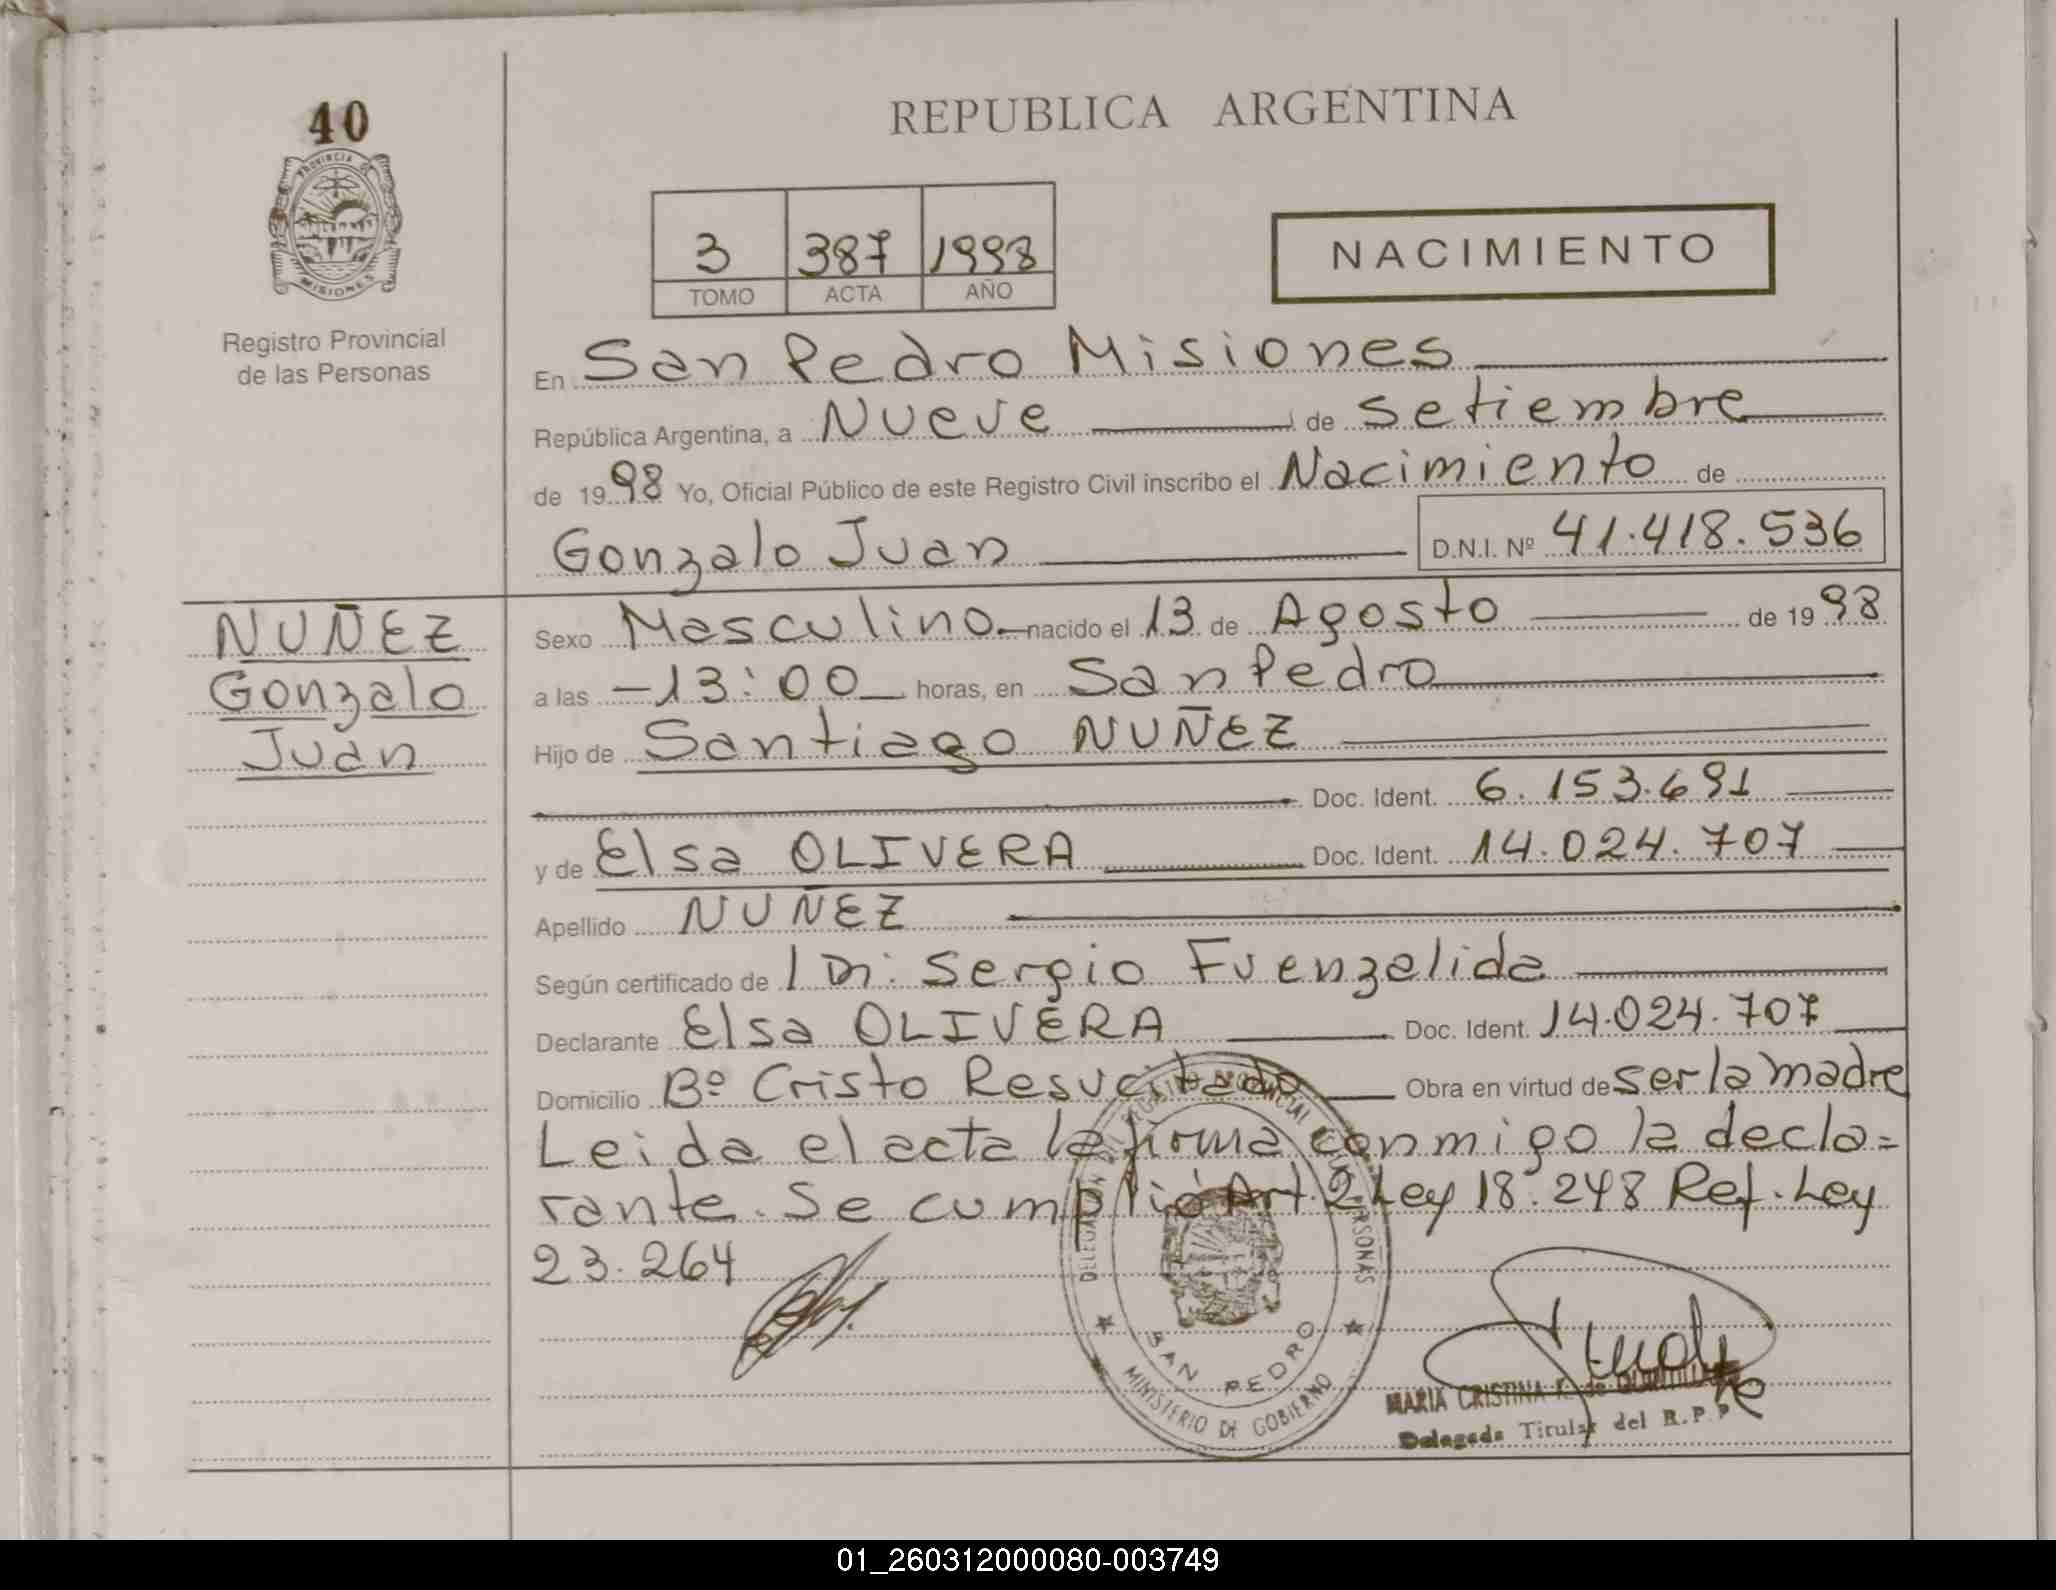 40
PROVINCIA DE
MISIONES
Registro Provincial
de las Personas
REPUBLICA ARGENTINA
3 387 1998
TOMO ACTA AÑO
NACIMIENTO
En San Pedro Misiones
República Argentina, a Nueve de Setiembre
de 1998 Yo, Oficial Público de este Registro Civil inscribo el Nacimiento de
Gonzalo Juan D.N.I. Nº 41.418.536
NUÑEZ
Gonzalo
Juan
Sexo Masculino nacido el 13 de Agosto de 1998
a las -13:00 horas, en San Pedro
Hijo de Santiago NUÑEZ
Doc. Ident. 6.153.691
y de Elsa OLIVERA Doc. Ident. 14.024.707
Apellido NUÑEZ
Según certificado de Dr. Sergio Fuenzalida
Declarante Elsa OLIVERA Doc. Ident. 14.024.707
Domicilio Bº Cristo Resucitado Obra en virtud de ser la madre
Leida el acta la firma conmigo la decla=
rante. Se cumplió Art. 2 Ley 18.248 Ref. Ley
23.264
DELEGACION DEL REGISTRO PROVINCIAL DE LAS PERSONAS
SAN PEDRO
MINISTERIO DE GOBIERNO
MARIA CRISTINA de
Delegada Titular del R.P.P
01_260312000080-003749